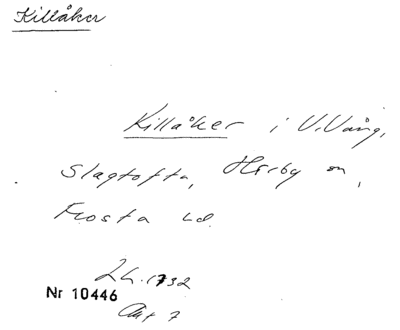 Killåker
Killåker i V. Vång,
Slagtofta, Hörby sn,
Frosta hd.
Lh. 1732
Nr 10446
Akt 7